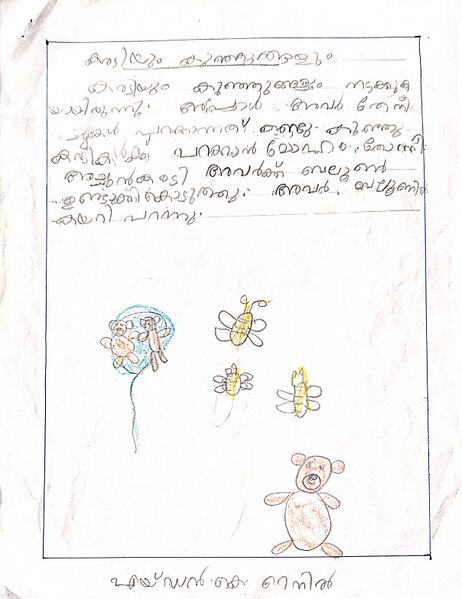 കരടിയും കുഞ്ഞുങ്ങളും
കരടിയും കുഞ്ഞുങ്ങളും നടക്കുക
യായിരുന്നു. അപ്പോൾ അവർ തേനീ
ച്ചകൾ പറക്കുന്നത് കണ്ടു. കുഞ്ഞു
കരടികൾക്ക് പറക്കാൻ മോഹം തോന്നി
അച്ഛൻകരടി അവർക്ക് ബലൂൺ
ഉണ്ടാക്കികൊടുത്തു. അവർ ബലൂണിൽ
കയറി പറന്നു.
എയ്ഡൻ കെ റെനിൽ